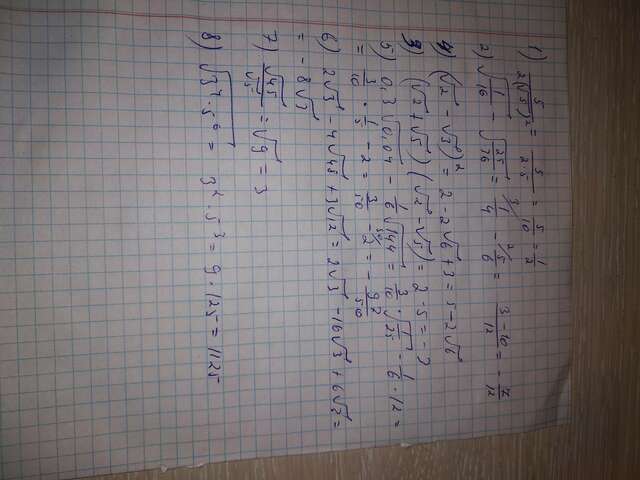 1) 5/2(√5)² = 5/2·5 = 5/10 = 1/2
2) √1/16 - √25/36 = 1/4 - 5/6 = 3-10/12 = -7/12
4) (√2 - √3)² = 2 - 2√6 + 3 = 5 - 2√6
3) (√2 + √5)(√2 - √5) = 2 - 5 = -3
5) 0,3√0,04 - 1/6√144 = 3/10 · √1/25 - 1/6 · 12 =
= 3/10 · 1/5 - 2 = 3/50 - 2 = - 97/50
6) 2√3 - 4√48 + 3√12 = 2√3 - 16√3 + 6√3 =
= - 8√3
7) √45/√5 = √9 = 3
8) √3⁴ · 5⁶ = 3² · 5³ = 9 · 125 = 1125